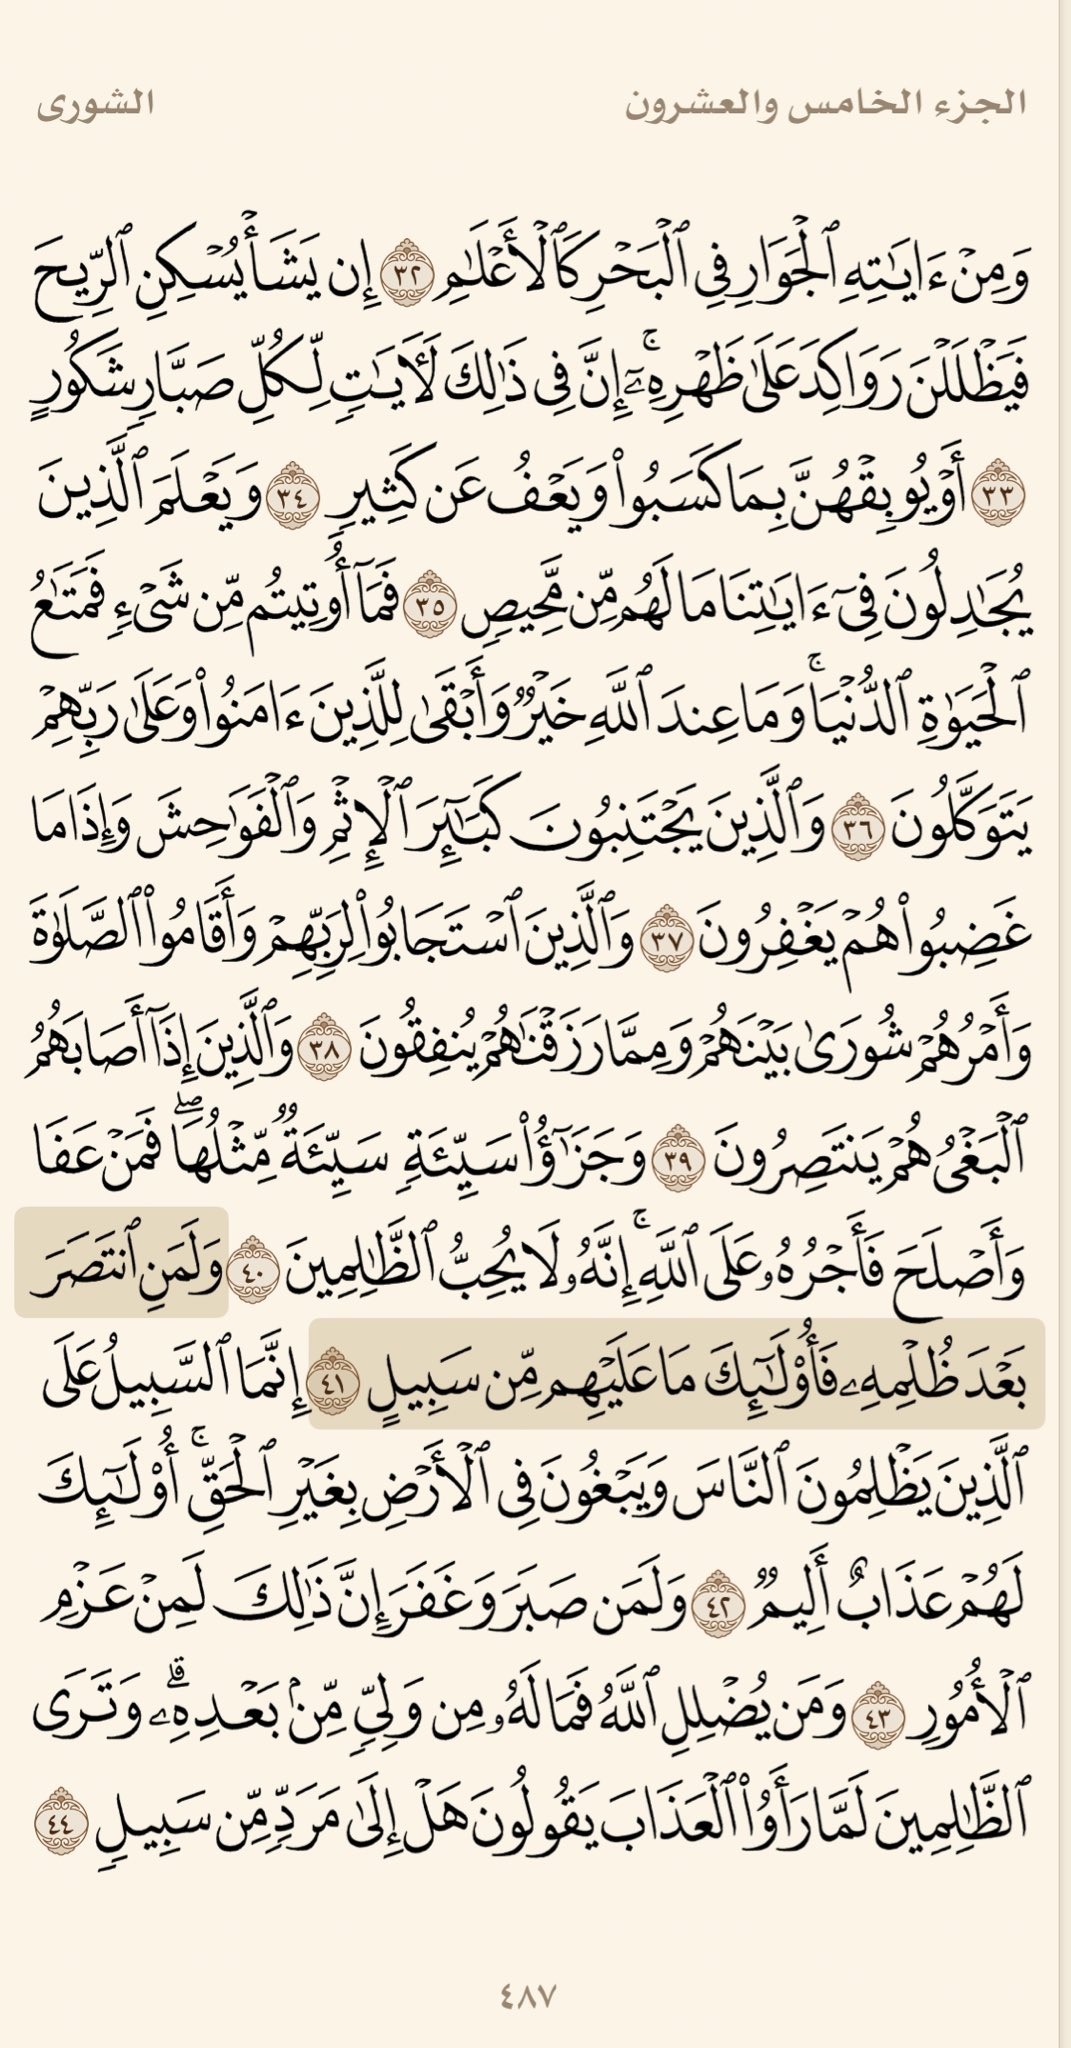 الجزء الخامس والعشرون
الشورى
وَمِنۡ ءَايَٰتِهِ ٱلۡجَوَارِ فِي ٱلۡبَحۡرِ كَٱلۡأَعۡلَٰمِ ٣٢ إِن يَشَأۡ يُسۡكِنِ ٱلرِّيحَ
فَيَظۡلَلۡنَ رَوَاكِدَ عَلَىٰ ظَهۡرِهِۦٓۚ إِنَّ فِي ذَٰلِكَ لَأٓيَٰتٖ لِّكُلِّ صَبَّارٖ شَكُورٍ
٣٣ أَوۡ يُوبِقۡهُنَّ بِمَا كَسَبُواْ وَيَعۡفُ عَن كَثِيرٖ ٣٤ وَيَعۡلَمَ ٱلَّذِينَ
يُجَٰدِلُونَ فِيٓ ءَايَٰتِنَا مَا لَهُم مِّن مَّحِيصٖ ٣٥ فَمَآ أُوتِيتُم مِّن شَيۡءٖ فَمَتَٰعُ
ٱلۡحَيَوٰةِ ٱلدُّنۡيَاۚ وَمَا عِندَ ٱللَّهِ خَيۡرٞ وَأَبۡقَىٰ لِلَّذِينَ ءَامَنُواْ وَعَلَىٰ رَبِّهِمۡ
يَتَوَكَّلُونَ ٣٦ وَٱلَّذِينَ يَجۡتَنِبُونَ كَبَٰٓئِرَ ٱلۡإِثۡمِ وَٱلۡفَوَٰحِشَ وَإِذَا مَا
غَضِبُواْ هُمۡ يَغۡفِرُونَ ٣٧ وَٱلَّذِينَ ٱسۡتَجَابُواْ لِرَبِّهِمۡ وَأَقَامُواْ ٱلصَّلَوٰةَ
وَأَمۡرُهُمۡ شُورَىٰ بَيۡنَهُمۡ وَمِمَّا رَزَقۡنَٰهُمۡ يُنفِقُونَ ٣٨ وَٱلَّذِينَ إِذَآ أَصَابَهُمُ
ٱلۡبَغۡيُ هُمۡ يَنتَصِرُونَ ٣٩ وَجَزَٰٓؤُاْ سَيِّئَةٖ سَيِّئَةٞ مِّثۡلُهَاۖ فَمَنۡ عَفَا
وَأَصۡلَحَ فَأَجۡرُهُۥ عَلَى ٱللَّهِۚ إِنَّهُۥ لَا يُحِبُّ ٱلظَّٰلِمِينَ ٤٠ وَلَمَنِ ٱنتَصَرَ
بَعۡدَ ظُلۡمِهِۦ فَأُوْلَٰٓئِكَ مَا عَلَيۡهِم مِّن سَبِيلٍ ٤١ إِنَّمَا ٱلسَّبِيلُ عَلَى
ٱلَّذِينَ يَظۡلِمُونَ ٱلنَّاسَ وَيَبۡغُونَ فِي ٱلۡأَرۡضِ بِغَيۡرِ ٱلۡحَقِّۚ أُوْلَٰٓئِكَ
لَهُمۡ عَذَابٌ أَلِيمٞ ٤٢ وَلَمَن صَبَرَ وَغَفَرَ إِنَّ ذَٰلِكَ لَمِنۡ عَزۡمِ
ٱلۡأُمُورِ ٤٣ وَمَن يُضۡلِلِ ٱللَّهُ فَمَا لَهُۥ مِن وَلِيّٖ مِّنۢ بَعۡدِهِۦۗ وَتَرَى
ٱلظَّٰلِمِينَ لَمَّا رَأَوُاْ ٱلۡعَذَابَ يَقُولُونَ هَلۡ إِلَىٰ مَرَدّٖ مِّن سَبِيلٖ ٤٤
٤٨٧